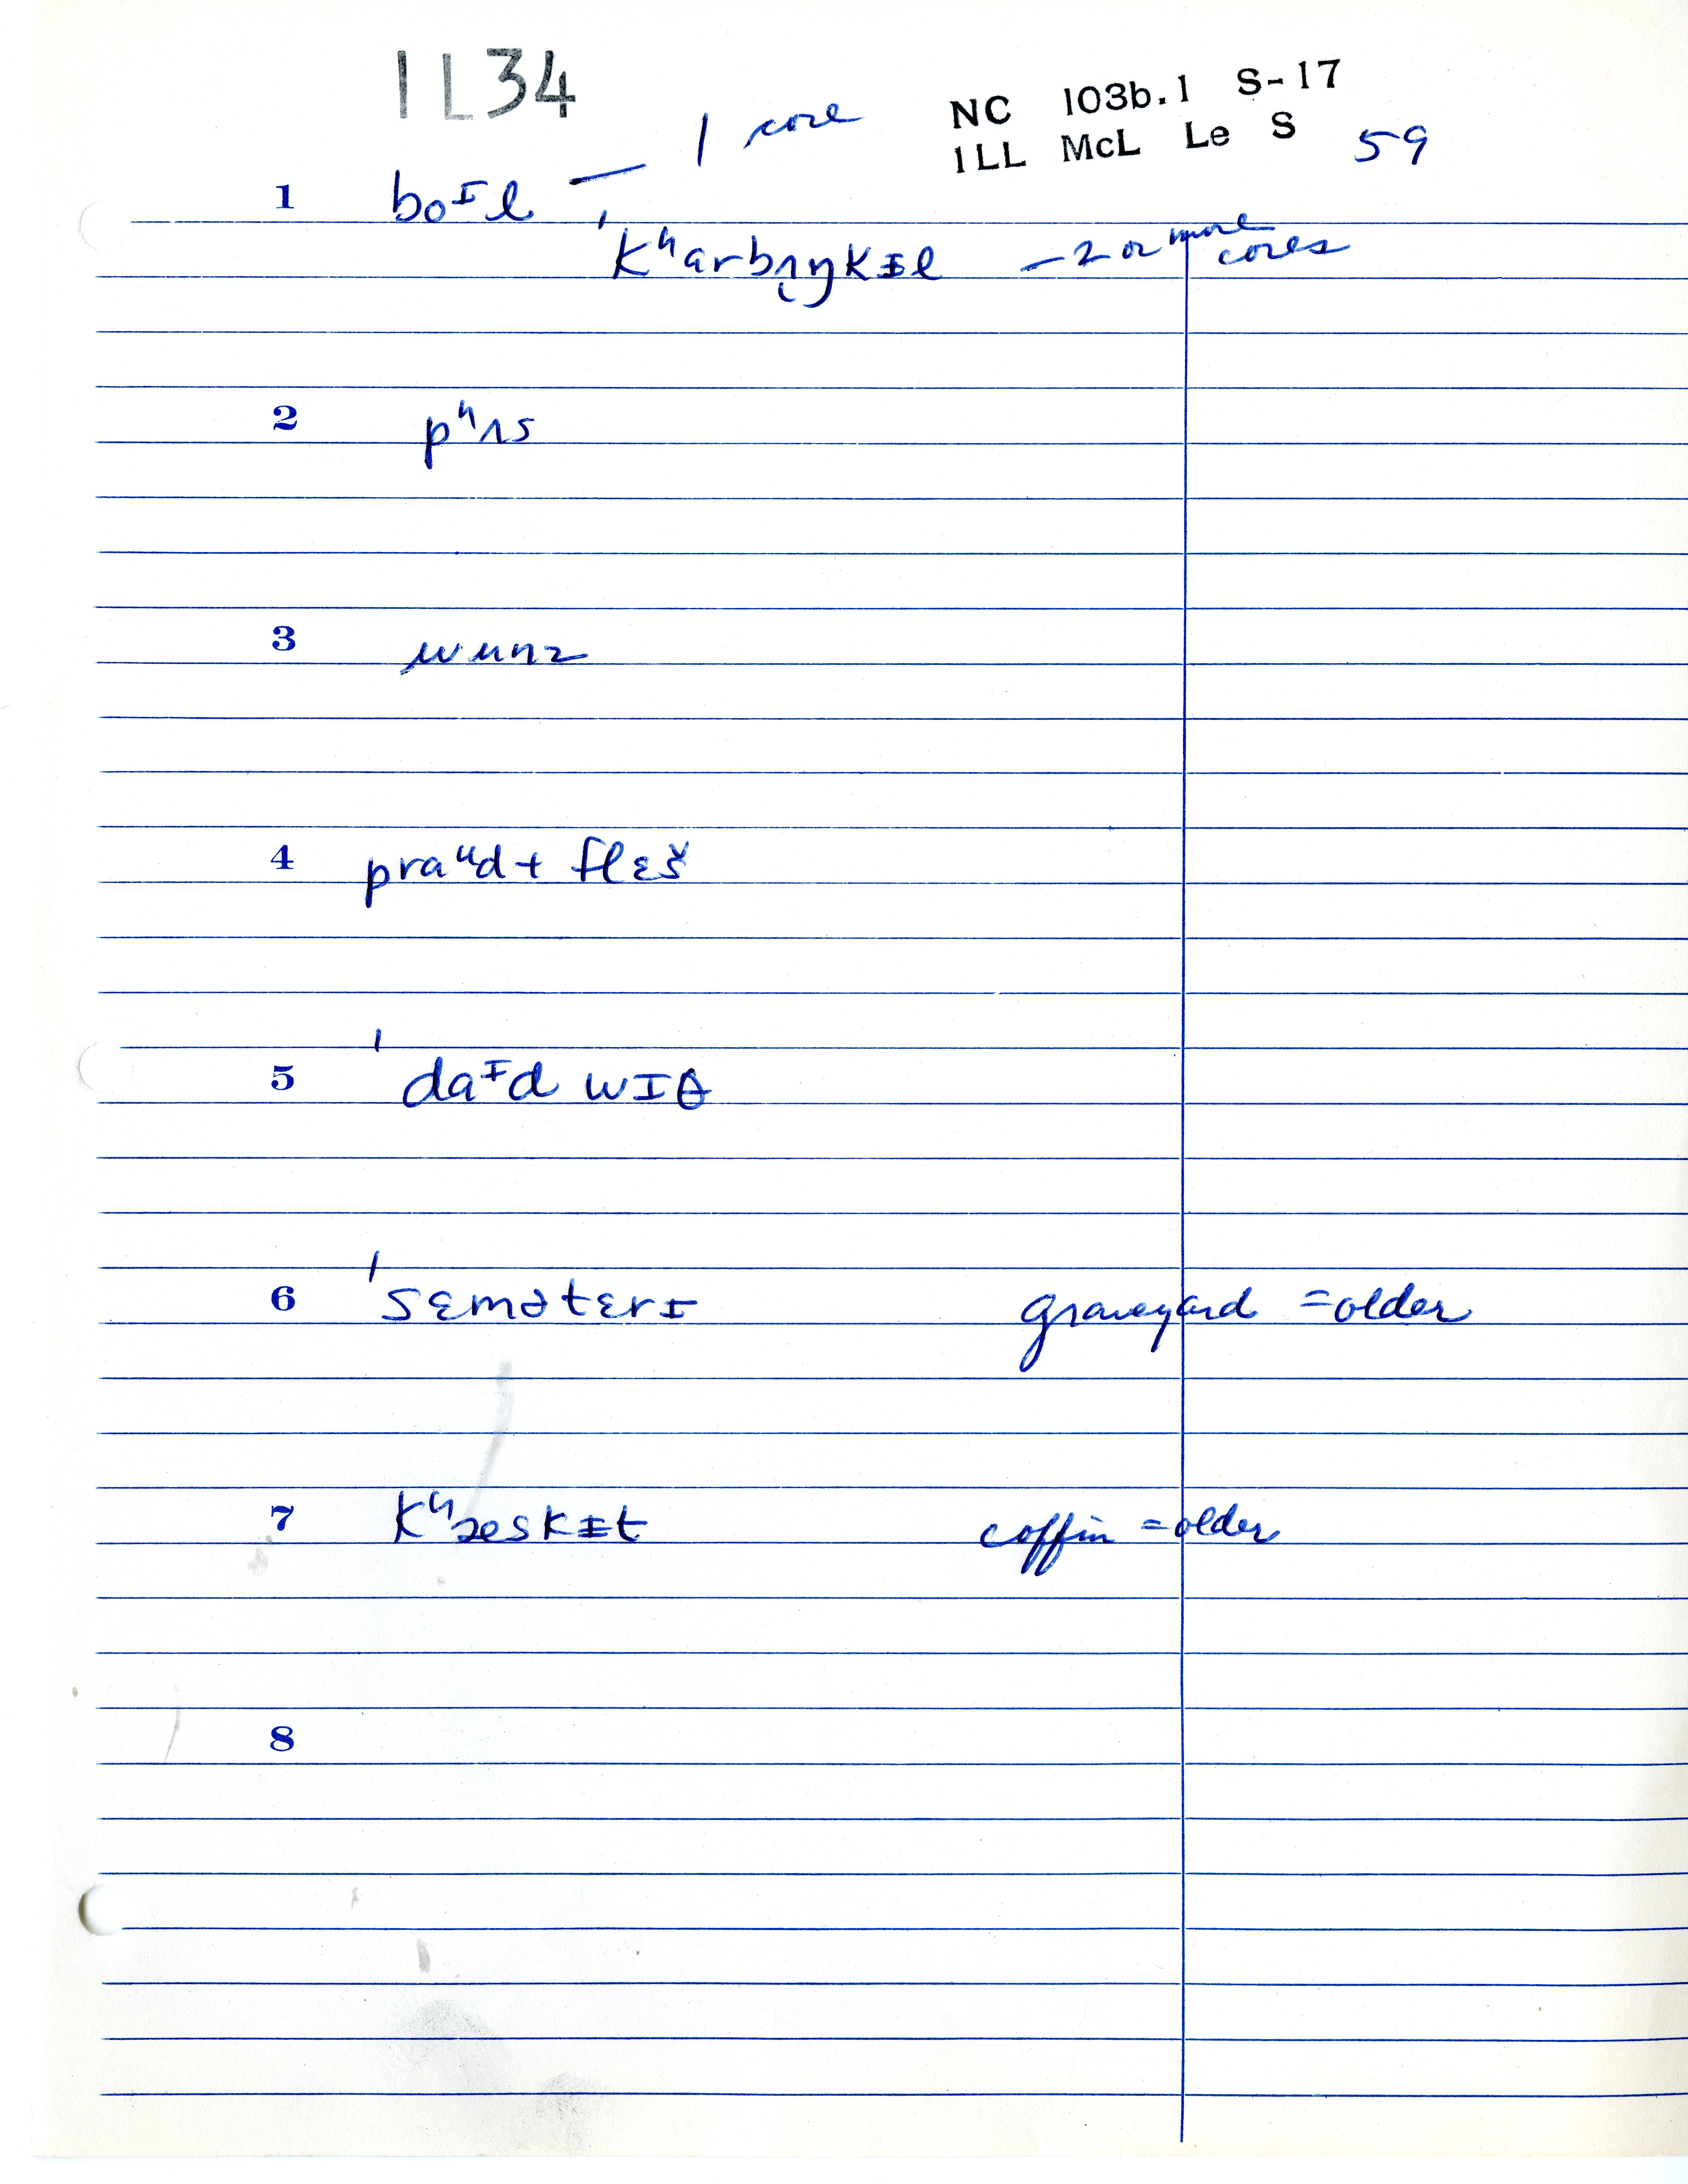 1L34
NC 103b.1 S-17
1LL McL Le S 59
1 boᴵl — 1 core
ˈkʰarbʌŋkɪl — 2 or more cores
2 pʰʌs
3 wunz
4 praᵘdɨ flɛš
5 ˈdaᴵd wɪθ
6 ˈsɛmətɛrɪ graveyard = older
7 kʰæskɪt coffin = older
8